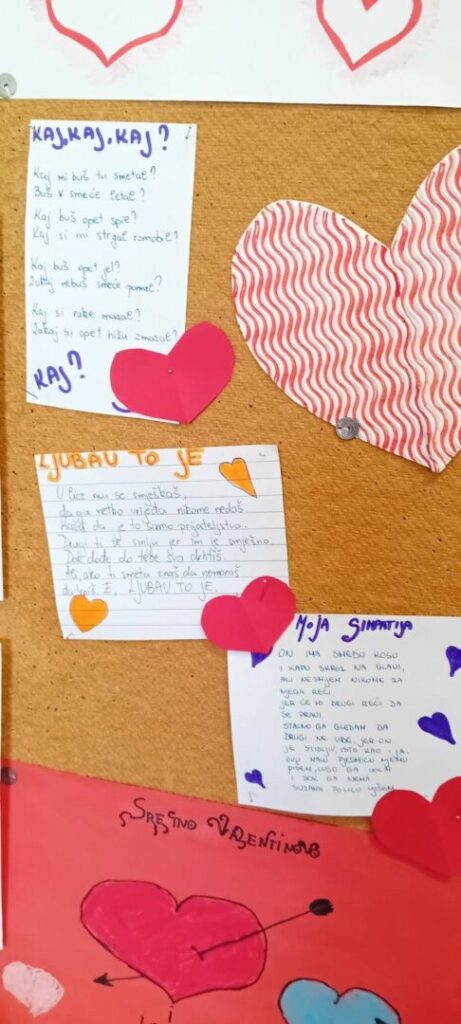 KAJ, KAJ, KAJ?
Kaj mi buš tu smetal?
Buš v smeće letal?
Kaj buš opet spie?
Kaj si mi strgal romobil?
Kaj buš opet jel?
Zakaj nebuš smeće pomel?
Kaj si ruke mazal?
Zakaj si opet hižu zmazal?
KAJ?
LJUBAV TO JE
U lice mu se smješkaš,
da ga netko vrijeđa nikome nedaš
kažeš da je to samo prijateljstvo.
Drugi ti se smiju jer im je smješno.
Dok dođe do tebe sva drhtiš.
Ali, ako ti smeta znaš da nemoraš
LJUBAV TO JE.
MOJA SIMPATIJA
ON IMA SMEĐU KOSU
I KAPU SKROZ NA GLAVI,
ALI NE SMIJEM NIKOME ZA
NJEGA REĆI,
JER ĆE MI DRUGI REĆI DA
SE PRAVI.
STALNO GA GLEDAM DA
DRUGI NE VIDE, JER ON
JE STIDLJIV, ISTO KAO I JA.
OVU MALU PJESMICU NJEMU
PIŠEM,
I DOK GA NEMA
SRETNO VALENTINOVO